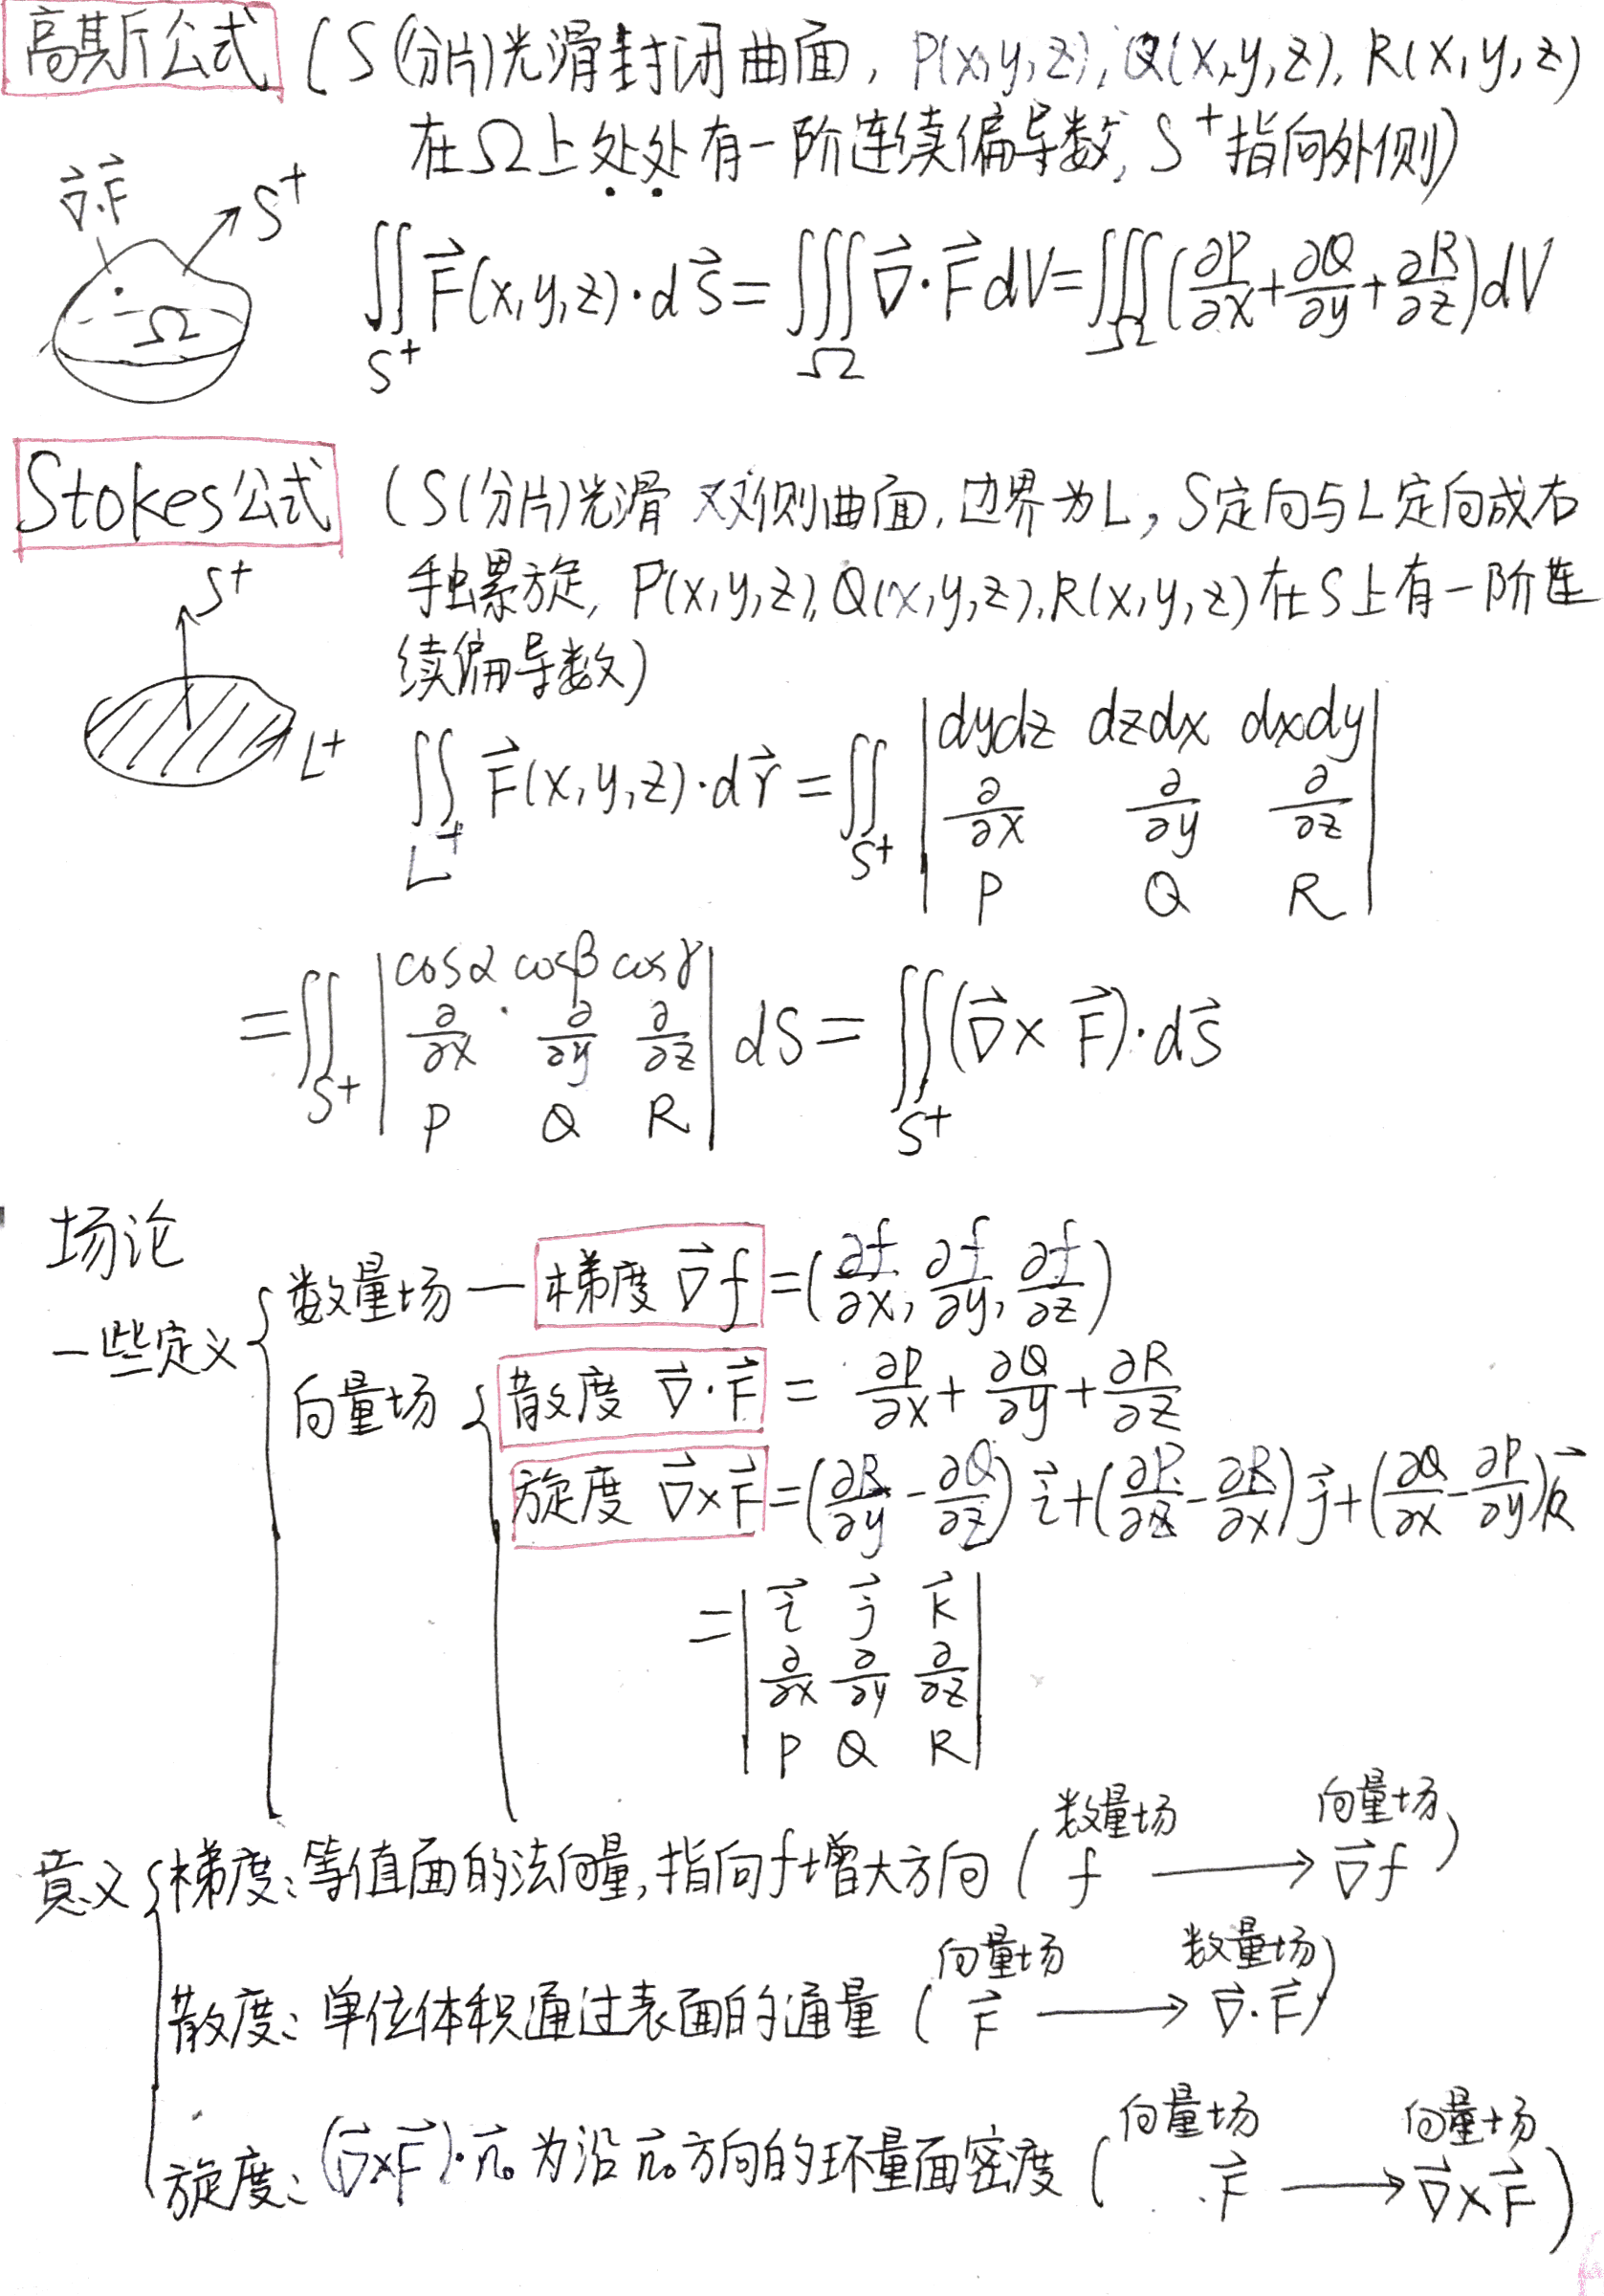 高斯公式 (S(分片)光滑封闭曲面, P(x,y,z), Q(x,y,z), R(x,y,z)
在Ω上处处有一阶连续偏导数, S⁺指向外侧)
∇⃗·F⃗ S⁺
Ω
∬_{S⁺} F⃗(x,y,z)·dS⃗ = ∭_Ω ∇⃗·F⃗ dV = ∭_Ω (∂P/∂x + ∂Q/∂y + ∂R/∂z) dV
Stokes公式 (S(分片)光滑双侧曲面, 边界为L, S定向与L定向成右
手螺旋, P(x,y,z), Q(x,y,z), R(x,y,z) 在S上有一阶连
续偏导数)
S⁺
L⁺
∬_{L⁺} F⃗(x,y,z)·dr⃗ = ∬_{S⁺} | dydz dzdx dxdy
∂/∂x ∂/∂y ∂/∂z
P Q R |
= ∬_{S⁺} | cosα cosβ cosγ
∂/∂x ∂/∂y ∂/∂z
P Q R | dS = ∬_{S⁺} (∇⃗×F⃗)·dS⃗
场论
一些定义 { 数量场 — 梯度 ∇⃗f = (∂f/∂x, ∂f/∂y, ∂f/∂z)
向量场 { 散度 ∇⃗·F⃗ = ∂P/∂x + ∂Q/∂y + ∂R/∂z
旋度 ∇⃗×F⃗ = (∂R/∂y - ∂Q/∂z) i⃗ + (∂P/∂z - ∂R/∂x) j⃗ + (∂Q/∂x - ∂P/∂y) k⃗
= | i⃗ j⃗ k⃗
∂/∂x ∂/∂y ∂/∂z
P Q R |
数量场 向量场
意义 { 梯度: 等值面的法向量, 指向f增大方向 ( f → ∇⃗f )
向量场 数量场
散度: 单位体积通过表面的通量 ( F⃗ → ∇⃗·F⃗ )
向量场 向量场
旋度: (∇⃗×F⃗)·n⃗₀ 为沿n⃗₀方向的环量面密度 ( F⃗ → ∇⃗×F⃗ )